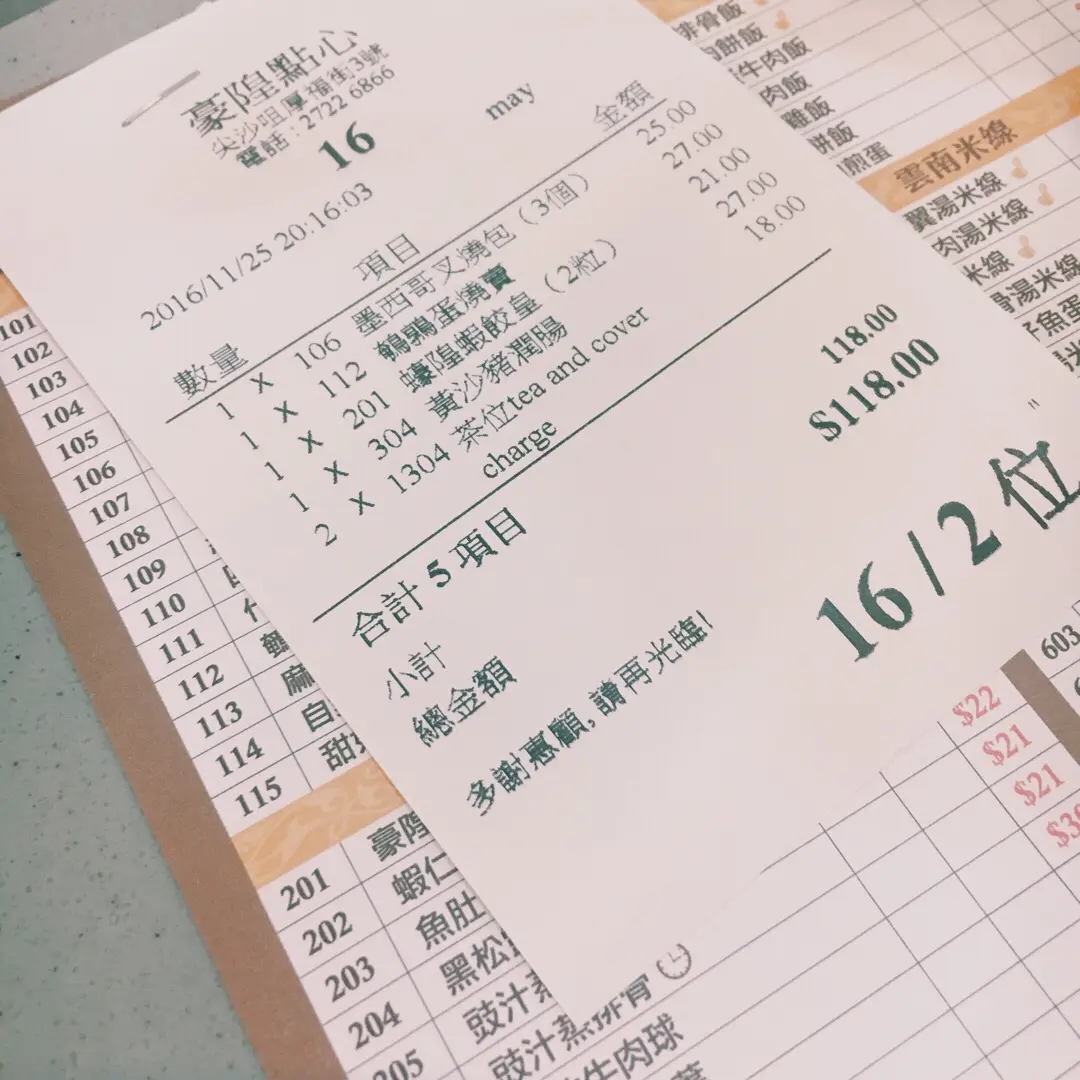 豪隍點心
尖沙咀厚福街3號
電話：2722 6866
16
may
2016/11/25 20:16:03
數量 項目 金額
1 x 106 墨西哥叉燒包（3個） 25.00
1 x 112 鵪鶉蛋燒賣 27.00
1 x 201 蠔隍蝦餃皇（2粒） 21.00
1 x 304 黃沙豬潤腸 27.00
2 x 1304 茶位tea and cover 18.00
charge
合計 5 項目
小計 118.00
總金額 $118.00
多謝惠顧, 請再光臨!
16 / 2 位
101
102
103
104
105
106
107
108
109
110
111
112
113 麻
114 自
115 甜
201 豪隍
202 蝦仁
203 魚肚
204 黑松
205 豉汁蒸
豉汁蒸排骨
牛肉球
排骨飯
肉餅飯
牛肉飯
肉飯
雞飯
餅飯
煎蛋
雲南米線
翼湯米線
肉湯米線
米線
骨湯米線
魚蛋
603
$22
$21
$21